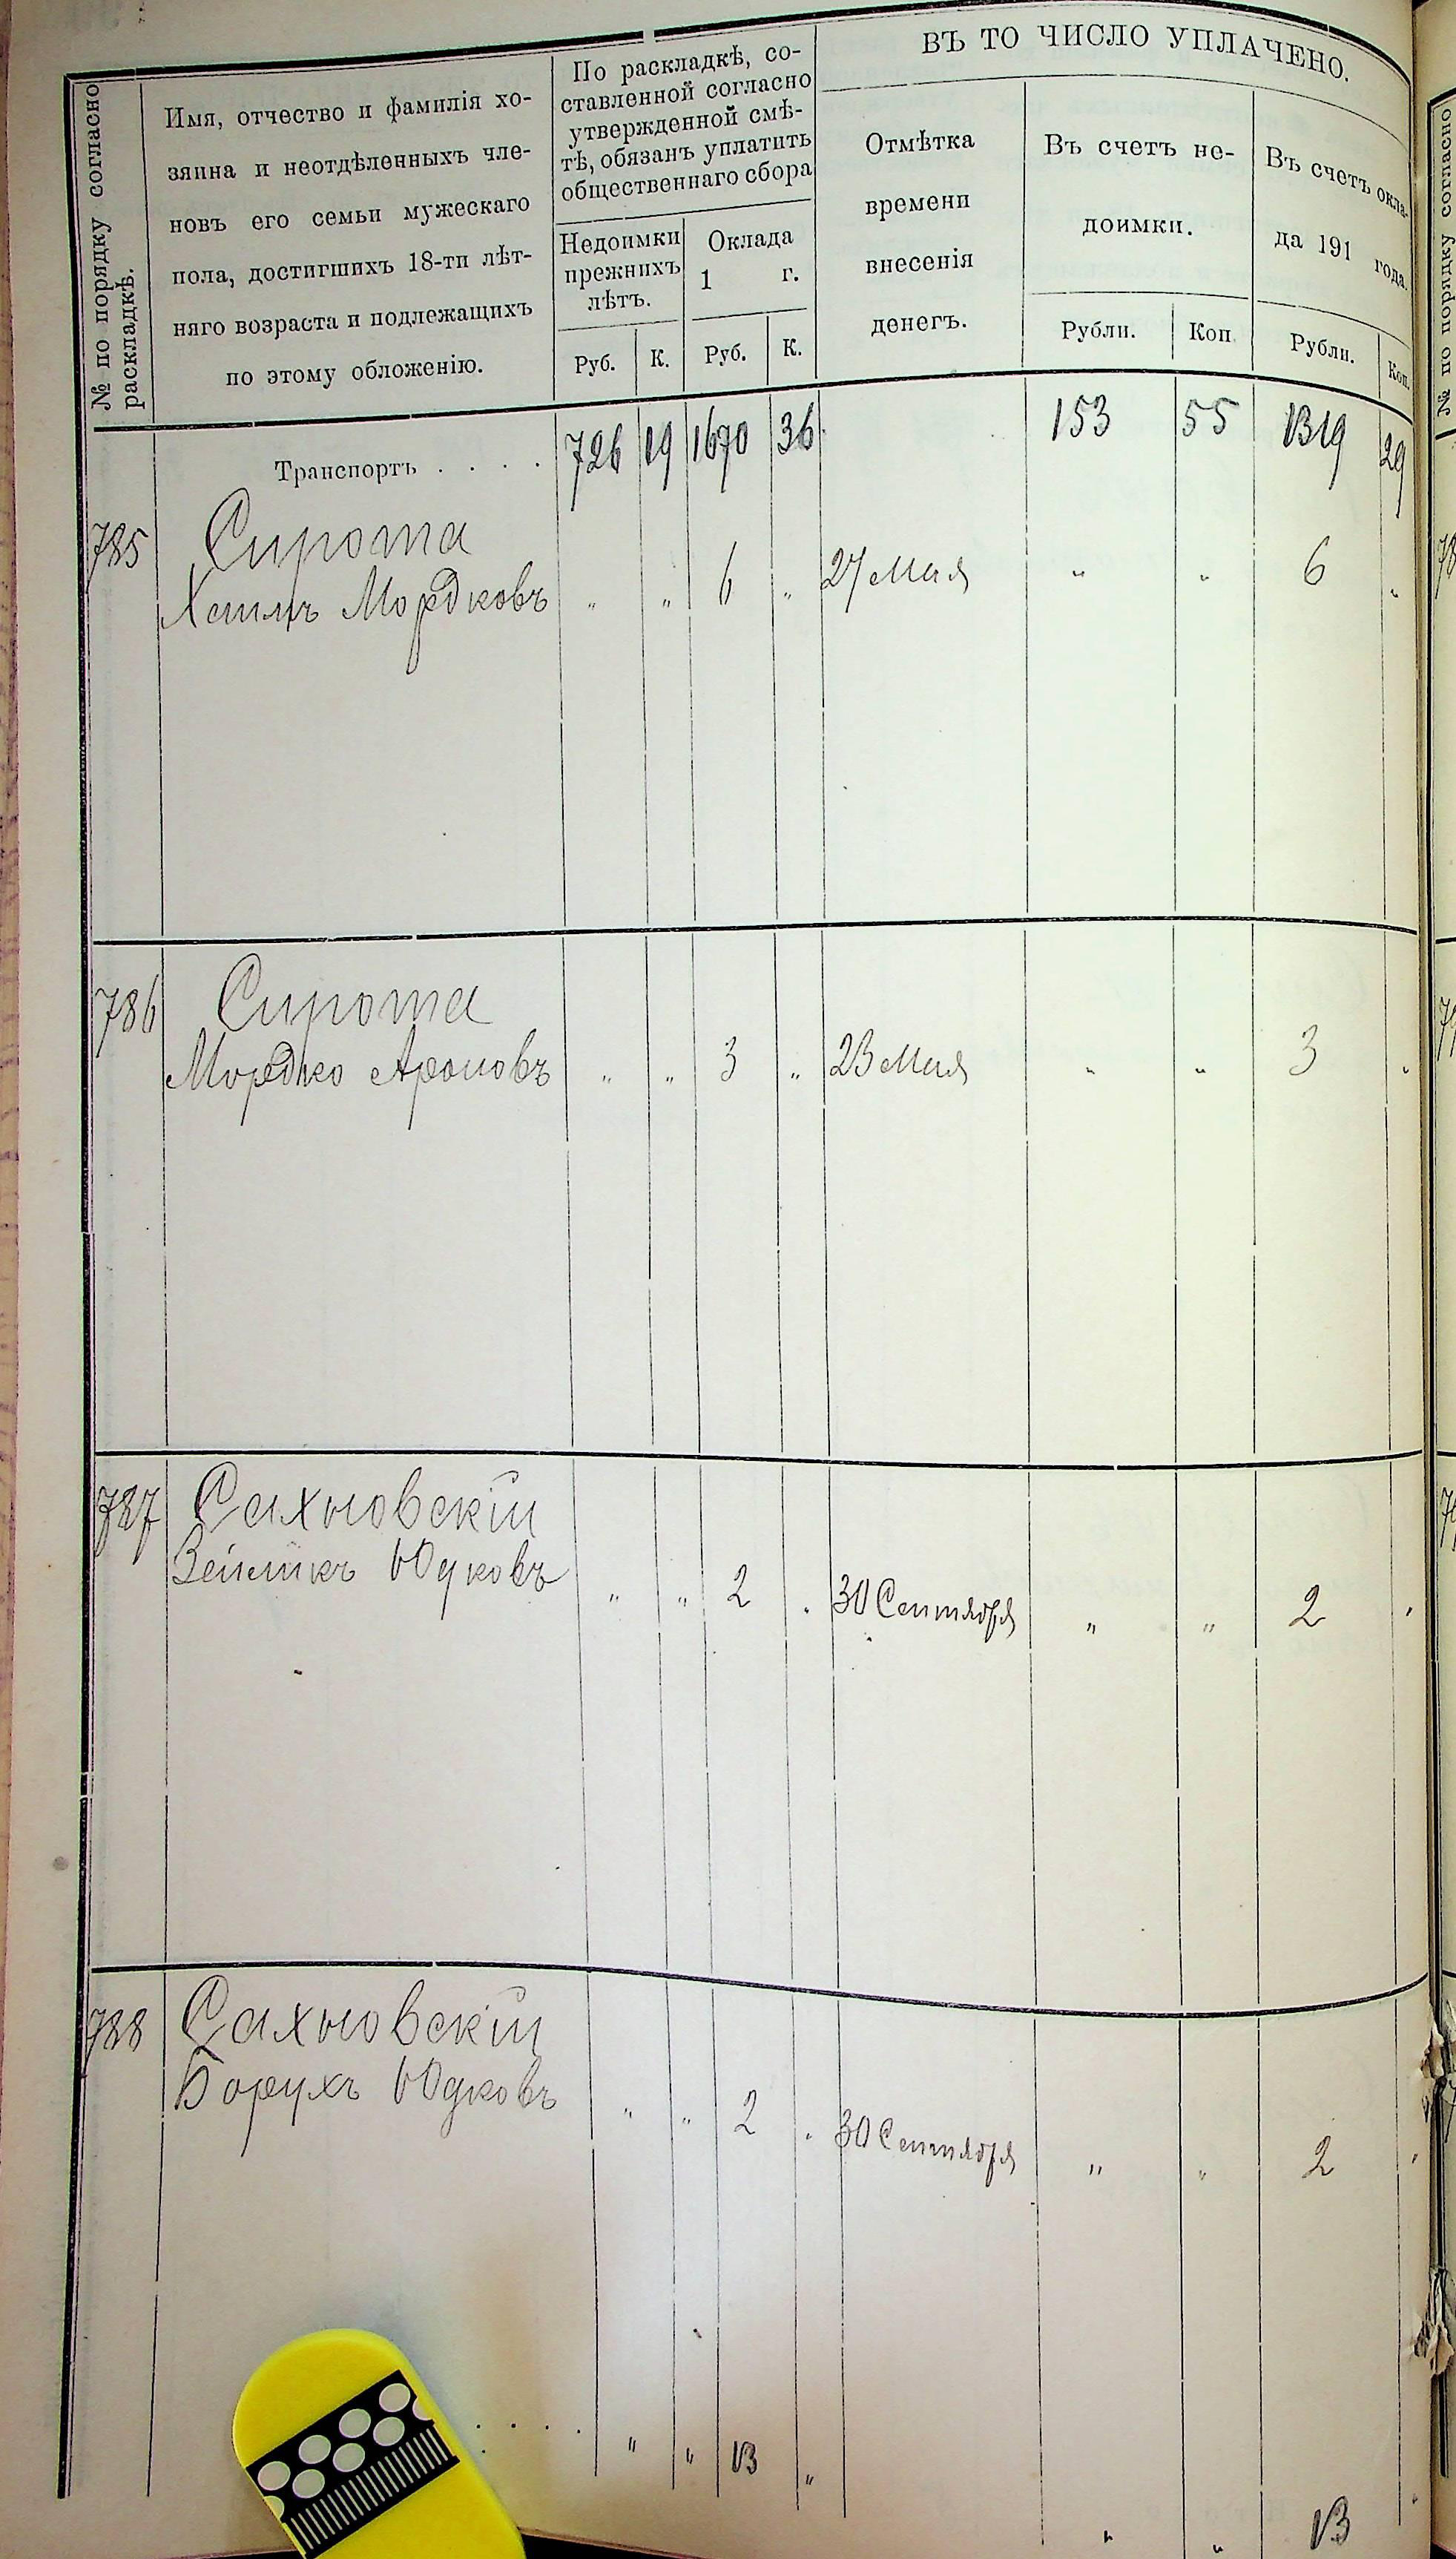 № по порядку согласно
раскладкѣ.
Имя, отчество и фамилія хо-
зяина и неотдѣленныхъ чле-
новъ его семьи мужескаго
пола, достигшихъ 18-ти лѣт-
няго возраста и подлежащихъ
по этому обложенію.
По раскладкѣ, со-
ставленной согласно
утвержденной смѣ-
тѣ, обязанъ уплатить
общественнаго сбора
Недоимки
прежнихъ
лѣтъ.
Оклада
1 г.
Руб. К. Руб. К.
ВЪ ТО ЧИСЛО УПЛАЧЕНО.
Отмѣтка
времени
внесенія
денегъ.
Въ счетъ не-
доимки.
Рубли. Коп.
Въ счетъ окла-
да 191 года.
Рубли. Коп.
Транспортъ . . . . 726 19 1670 36 153 55 1319 29
785 Сирота
Хаимъ Мордковъ " " 6 " 27 Мая " " 6 "
786 Сирота
Мордко Ароновъ " " 3 " 23 Мая " " 3 "
787 Сахновскій
Зейликъ Юдковъ " " 2 " 30 Сентября " " 2 "
788 Сахновскій
Борухъ Юдковъ " " 2 " 30 Сентября " " 2 "
. . . . " " 13 " " " 13 "
№ по порядку согласно